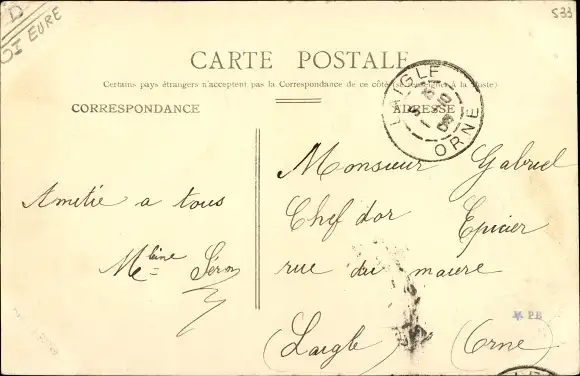 D
EURE
S33
CARTE POSTALE
Certains pays étrangers n'acceptent pas la Correspondance de ce côté (se renseigner à la Poste)
CORRESPONDANCE
ADRESSE
LAIGLE
ORNE
Amitié a tous
Mlle Séron
Monsieur Gabriel
Chef d'or Epicier
rue du maure
(Laigle) (Orne)
PB